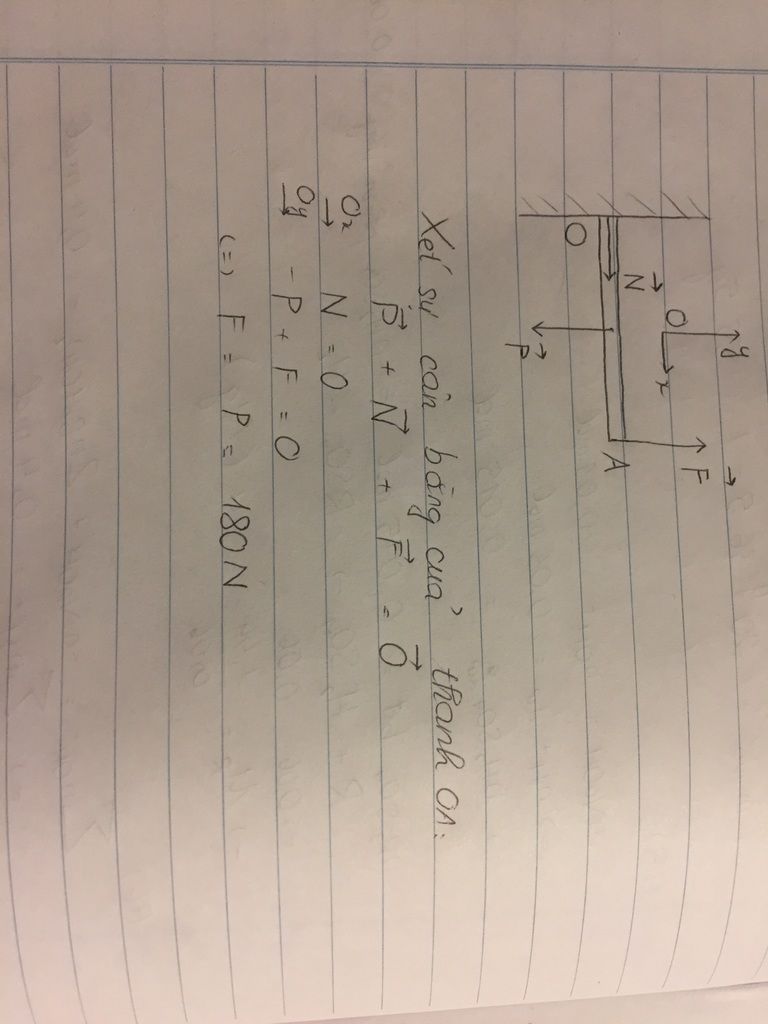 y
O
x
F
N
O
A
P
Xét sự cân bằng của thanh OA:
P + N + F = O
Ox N = 0
Oy - P + F = 0
(=) F = P = 180N